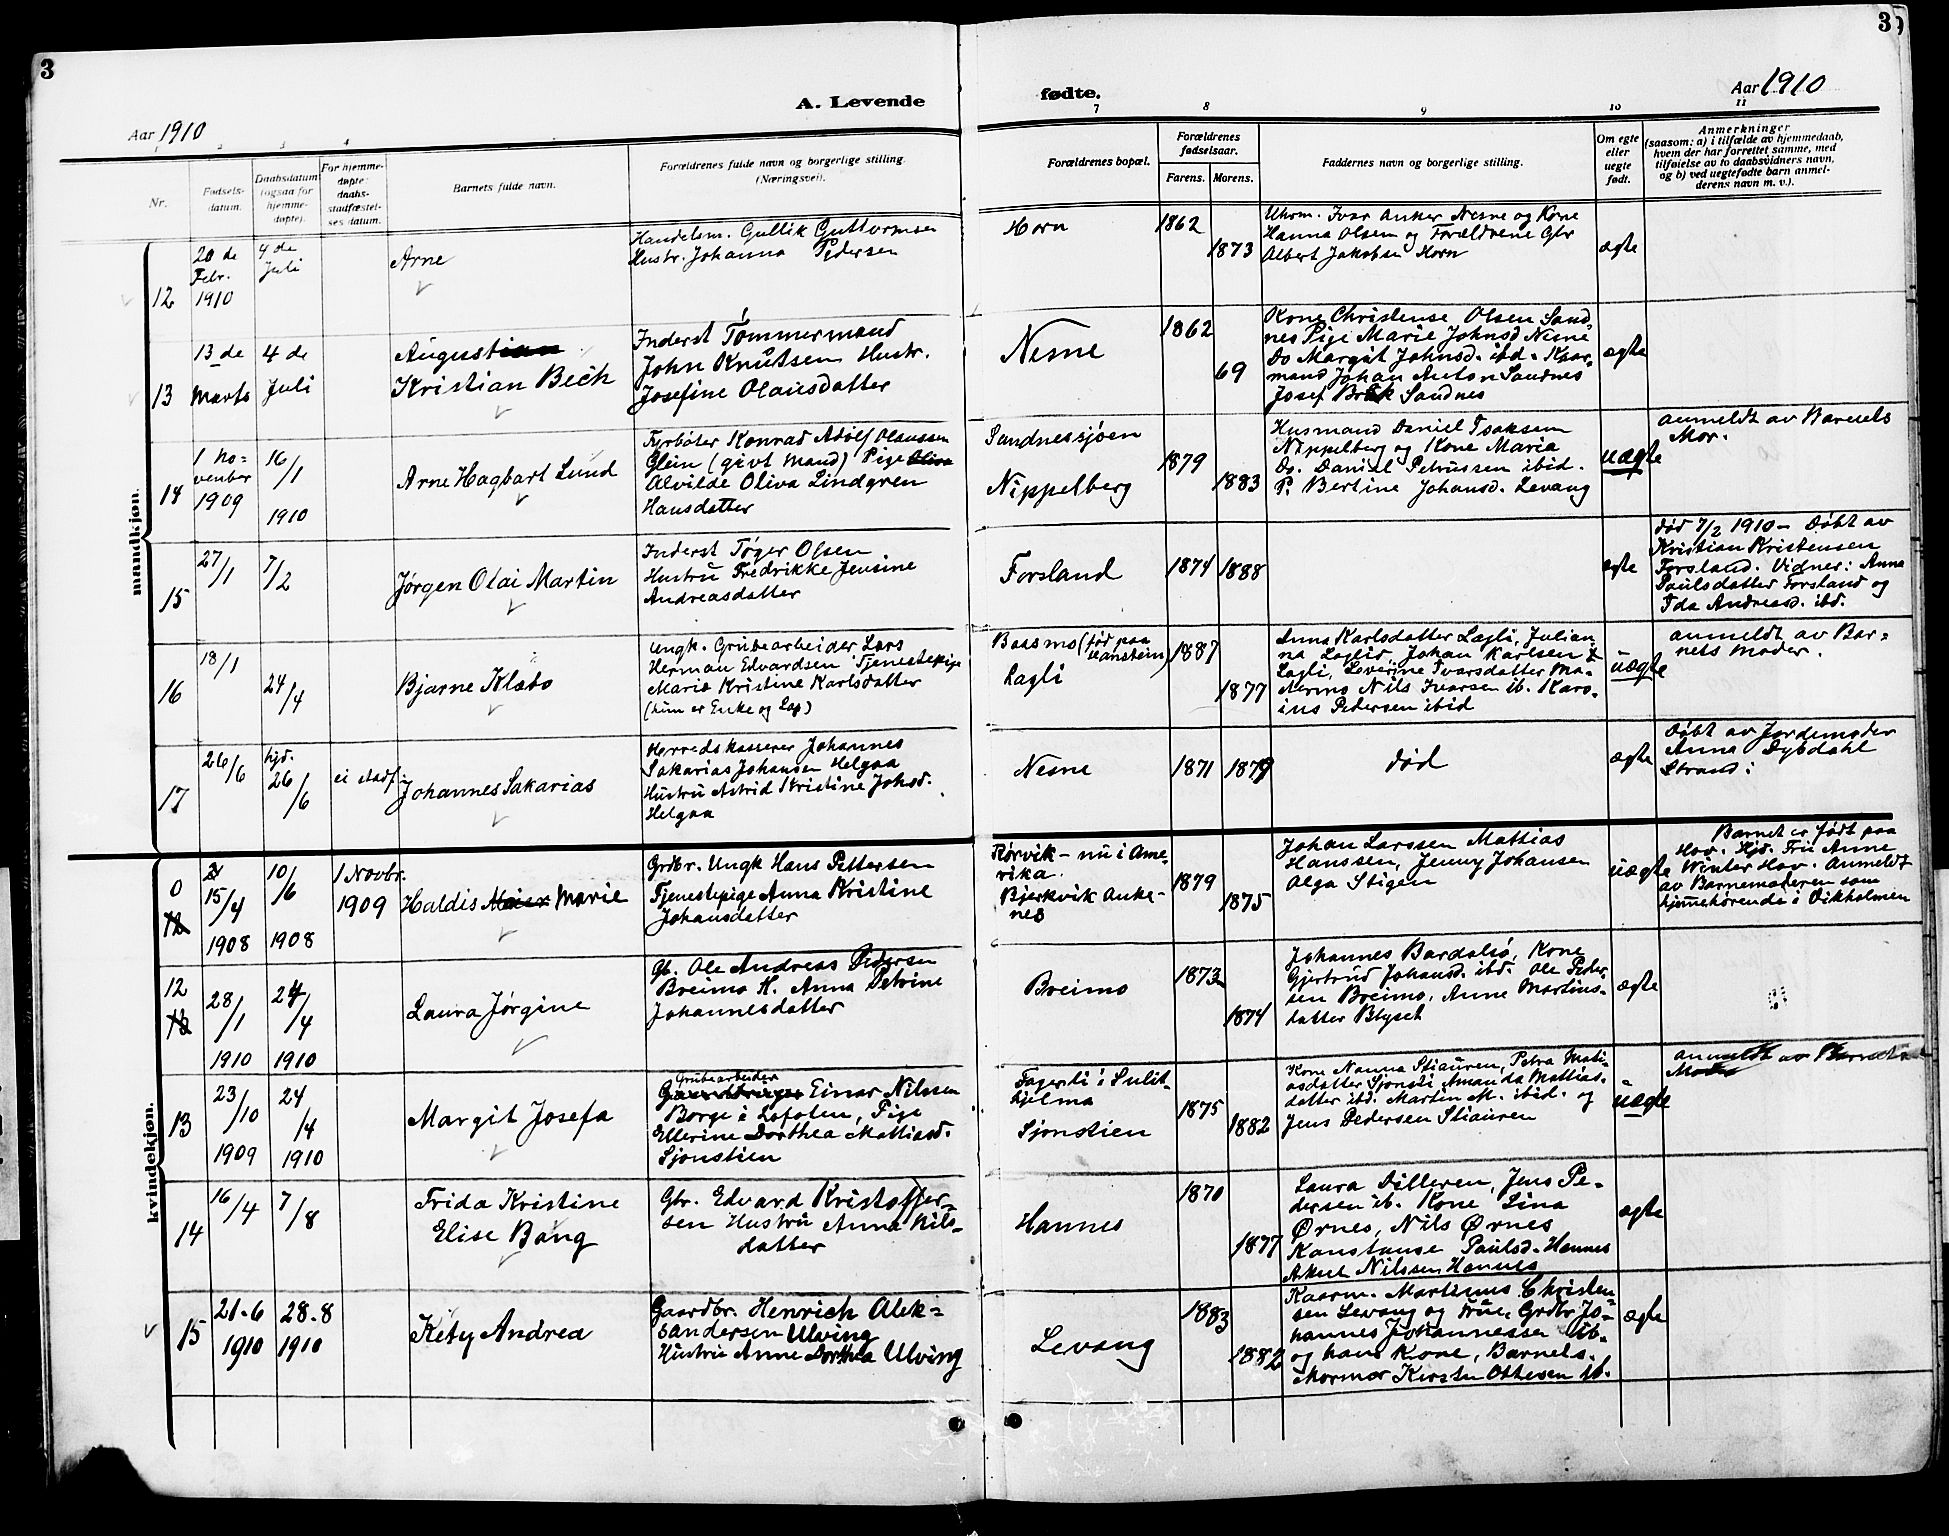 3
3
A. Levende
fødte.
Aar 1910
Aar 1910
2 3 4 7 8 9 10 11
Nr.
Fødsels-
datum.
Daabsdatum
(ogsaa for
hjemme-
døpte).
For hjemme-
døpte:
daabs-
stadfæstel-
ses datum.
Barnets fulde navn.
Forældrenes fulde navn og borgerlige stilling.
(Næringsvei).
Forældrenes bopæl.
Forældrenes
fødselsaar.
Farens. Morens.
Faddernes navn og borgerlige stilling.
Om egte
eller
uegte
født.
Anmerkninger
(saasom: a) i tilfælde av hjemmedaab,
hvem der har forrettet samme, med
tilføielse av to daabsvidners navn,
og b) ved uegtefødte barn anmel-
derens navn m. v.).
mandkjøn.
12
20 de
Febr.
1910
4 de
Juli
Arne
Handelsm. Gullik Guttormsen
Hustr. Johanna Pedersen
Horn
1862
1873
Uhrm. Ivar Anker Nesne og Kone
Hanna Olsen og Forældrene Gbr
Albert Jakobsen Horn
ægte
13
13 de
Marts
4 de
Juli
Augustian
Kristian Bech
Inderst Tømmermand
John Knutsen Hustr.
Josefine Olausdatter
Nesne
1862
69
Kone Christense Olsen Sand
nes Pige Marie Johnsd Nesne
Do Margit Johnsd. ibd. Kaar-
mand Johan Anton Sandnes
Josef Sandnes
ægte
14
1 No-
venber
1909
16/1
1910
Arne Hagbart Lund
Fyrbøter Konrad Adolf Olaussen
Glein (givt mand) Pige Oliva
Alvilde Oliva Lindgren
Hansdatter
Sandnessjøen
Nippelberg
1879
1883
Husmand Daniel Isaksen
Nippelberg og Kone Maria
Do. Daniel Petrussen ibid.
P. Bertine Johansd. Levang
uægte
anmeldt av Barnets
Mor.
15
27/1
7/2
Jørgen Olai Martin
Inderst Tøger Olsen
Hustru Fredrikke Jensine
Andreasdatter
Forsland
1874
1888
ægte
død 7/2 1910 - Døbt av
Kristian Kristensen
Forsland. Vidner: Anna
Paulsdatter Forsland og
Ida Andreasd. ibd.
16
18/1
24/4
Bjarne Klæbo
Ungk. Grubearbeider Lars
Herman Edvardsen Tjenestepige
Marie Kristine Karlsdatter
(hun er Enke og Lap)
Baasmo (fød paa
Ranstein)
Lagli
1887
1877
Anna Karlsdatter Lagli, Julian
na Lagli, Johan Karlsen
Lagli, Leverine Ivarsdatter Ma-
Nils Ivarsen ib. Karo-
ine Pedersen ibid
uægte
anmeldt av Bar-
nets Moder.
17
26/6
hjd.
26/6
ei stadf.
Johannes Sakarias
Herredskasserer Johannes
Sakarias Johansen Helgaa
Hustru Astrid Kristine Johsd.
Helgaa
Nesne
1871
1879
død
ægte
Døbt av Jordemoder
Anna Dybdahl
Strand:
kvindekjøn.
0
12
15/4
1908
10/6
1908
1 Novbr.
1909
Haldis Marie
Grdbr. Ungk Hans Pettersen
Tjenestepige Anna Kristine
Johansdatter
Rørvik - nu i Ame-
rika.
Bjerkvik Anke-
nes
1879
1875
Johan Larssen Mattias
Hanssen, Jenny Johansen
Olga Stigen
uægte
Barnet er født paa
Hov. Hjd. Fru Anne
Winter Hov. Anmeldt
av Barnemoderen som
hjemmehørende i Vikholmen
12
13
28/1
1910
24/4
1910
Laura Jørgine
Gb. Ole Andreas Pedersen
Breimo H. Anna Petrine
Johannesdatter
Breimo
1873
1874
Johannes Bardalsø, Kone
Gjertrud Johansd. ibd. Ole Peder-
sen Breimo, Anne Martins-
datter Blyset
ægte
13
23/10
1909
24/4
1910
Margit Josefa
Grubearbeider
Einar Nilssen
Borge i Lofoten, Pige
Ellerine Dorthea Mattiasd.
Sjonstien
Fagerli i Sulit-
hjelma
Sjonstien
1875
1882
Kone Nanna Stiauren, Petra Mati
asdatter Sjonsti Amanda Mattias-
datter ibd. Martin M. ibid. og
Jens Pedersen Stiauren
uægte
anmeldt av Barnets
Moder
14
16/4
7/8
Frida Kristine
Elise Bang
Gbr. Edvard Kristoffer-
sen Hustru Anna Nils-
datter
Hannes
1870
1877
Laura Dilleren, Jens Pe-
dersen ib. Kone Lina
Ørnes, Nils Ørnes
Konstanse Paulsd. Hannes
Aksel Nilssen Hannes
ægte
15
21-6
1910
28-8
1910
Kety Andrea
Gaardbr. Henrich Alek-
sandersen Ulving
Hustru Anne Dorthea Ulving
Levang
1883
1882
Kaarm. Martinus Christen
sen Levang og Frue, Grdbr Jo-
hannes Johannessen ib.
og hans Kone, Barnets
Mormor Kirsten Ottesen ib.
ægte